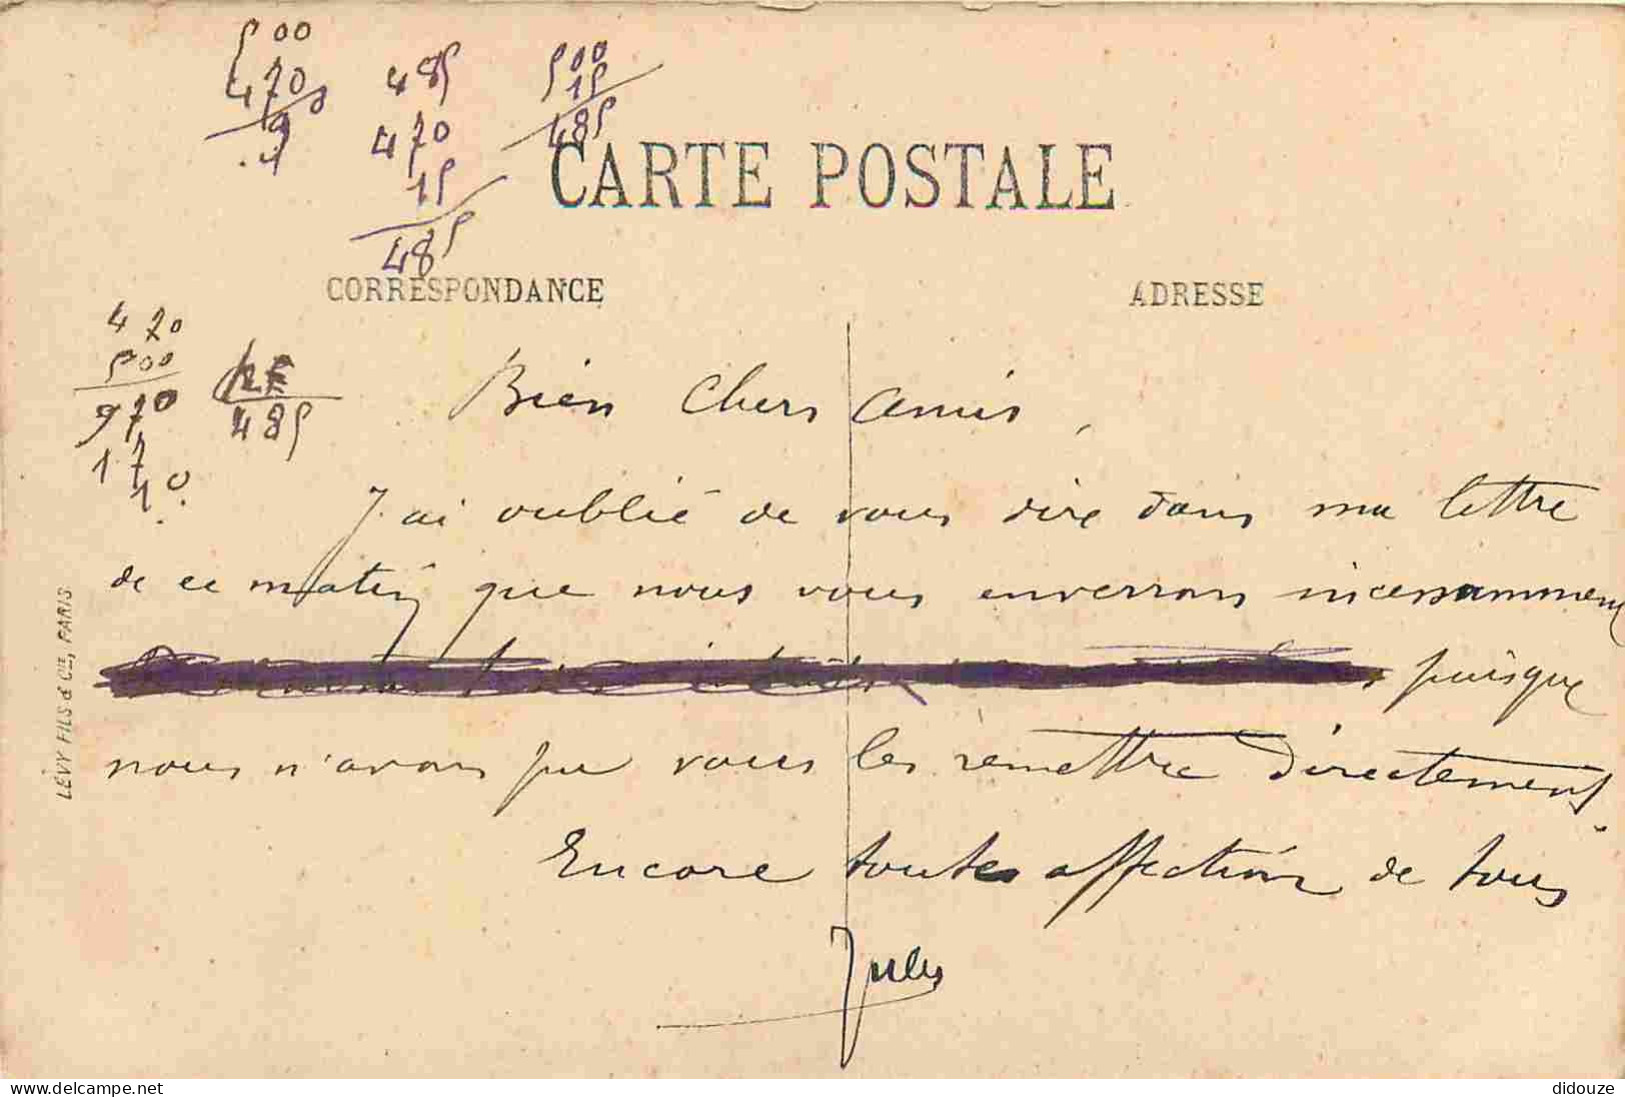 500
470
485
470
15
485
500
15
485
CARTE POSTALE
CORRESPONDANCE
ADRESSE
470
500
970
17
10
485
Bien chers amis,
J'ai oublié de vous dire dans ma lettre
de ce matin que nous vous enverrons incessamment
puisque
nous n'avons pu vous les remettre directement.
Encore toutes affection de tous
Jules
LÉVY FILS & CIE, PARIS
www.delcampe.net
didouze